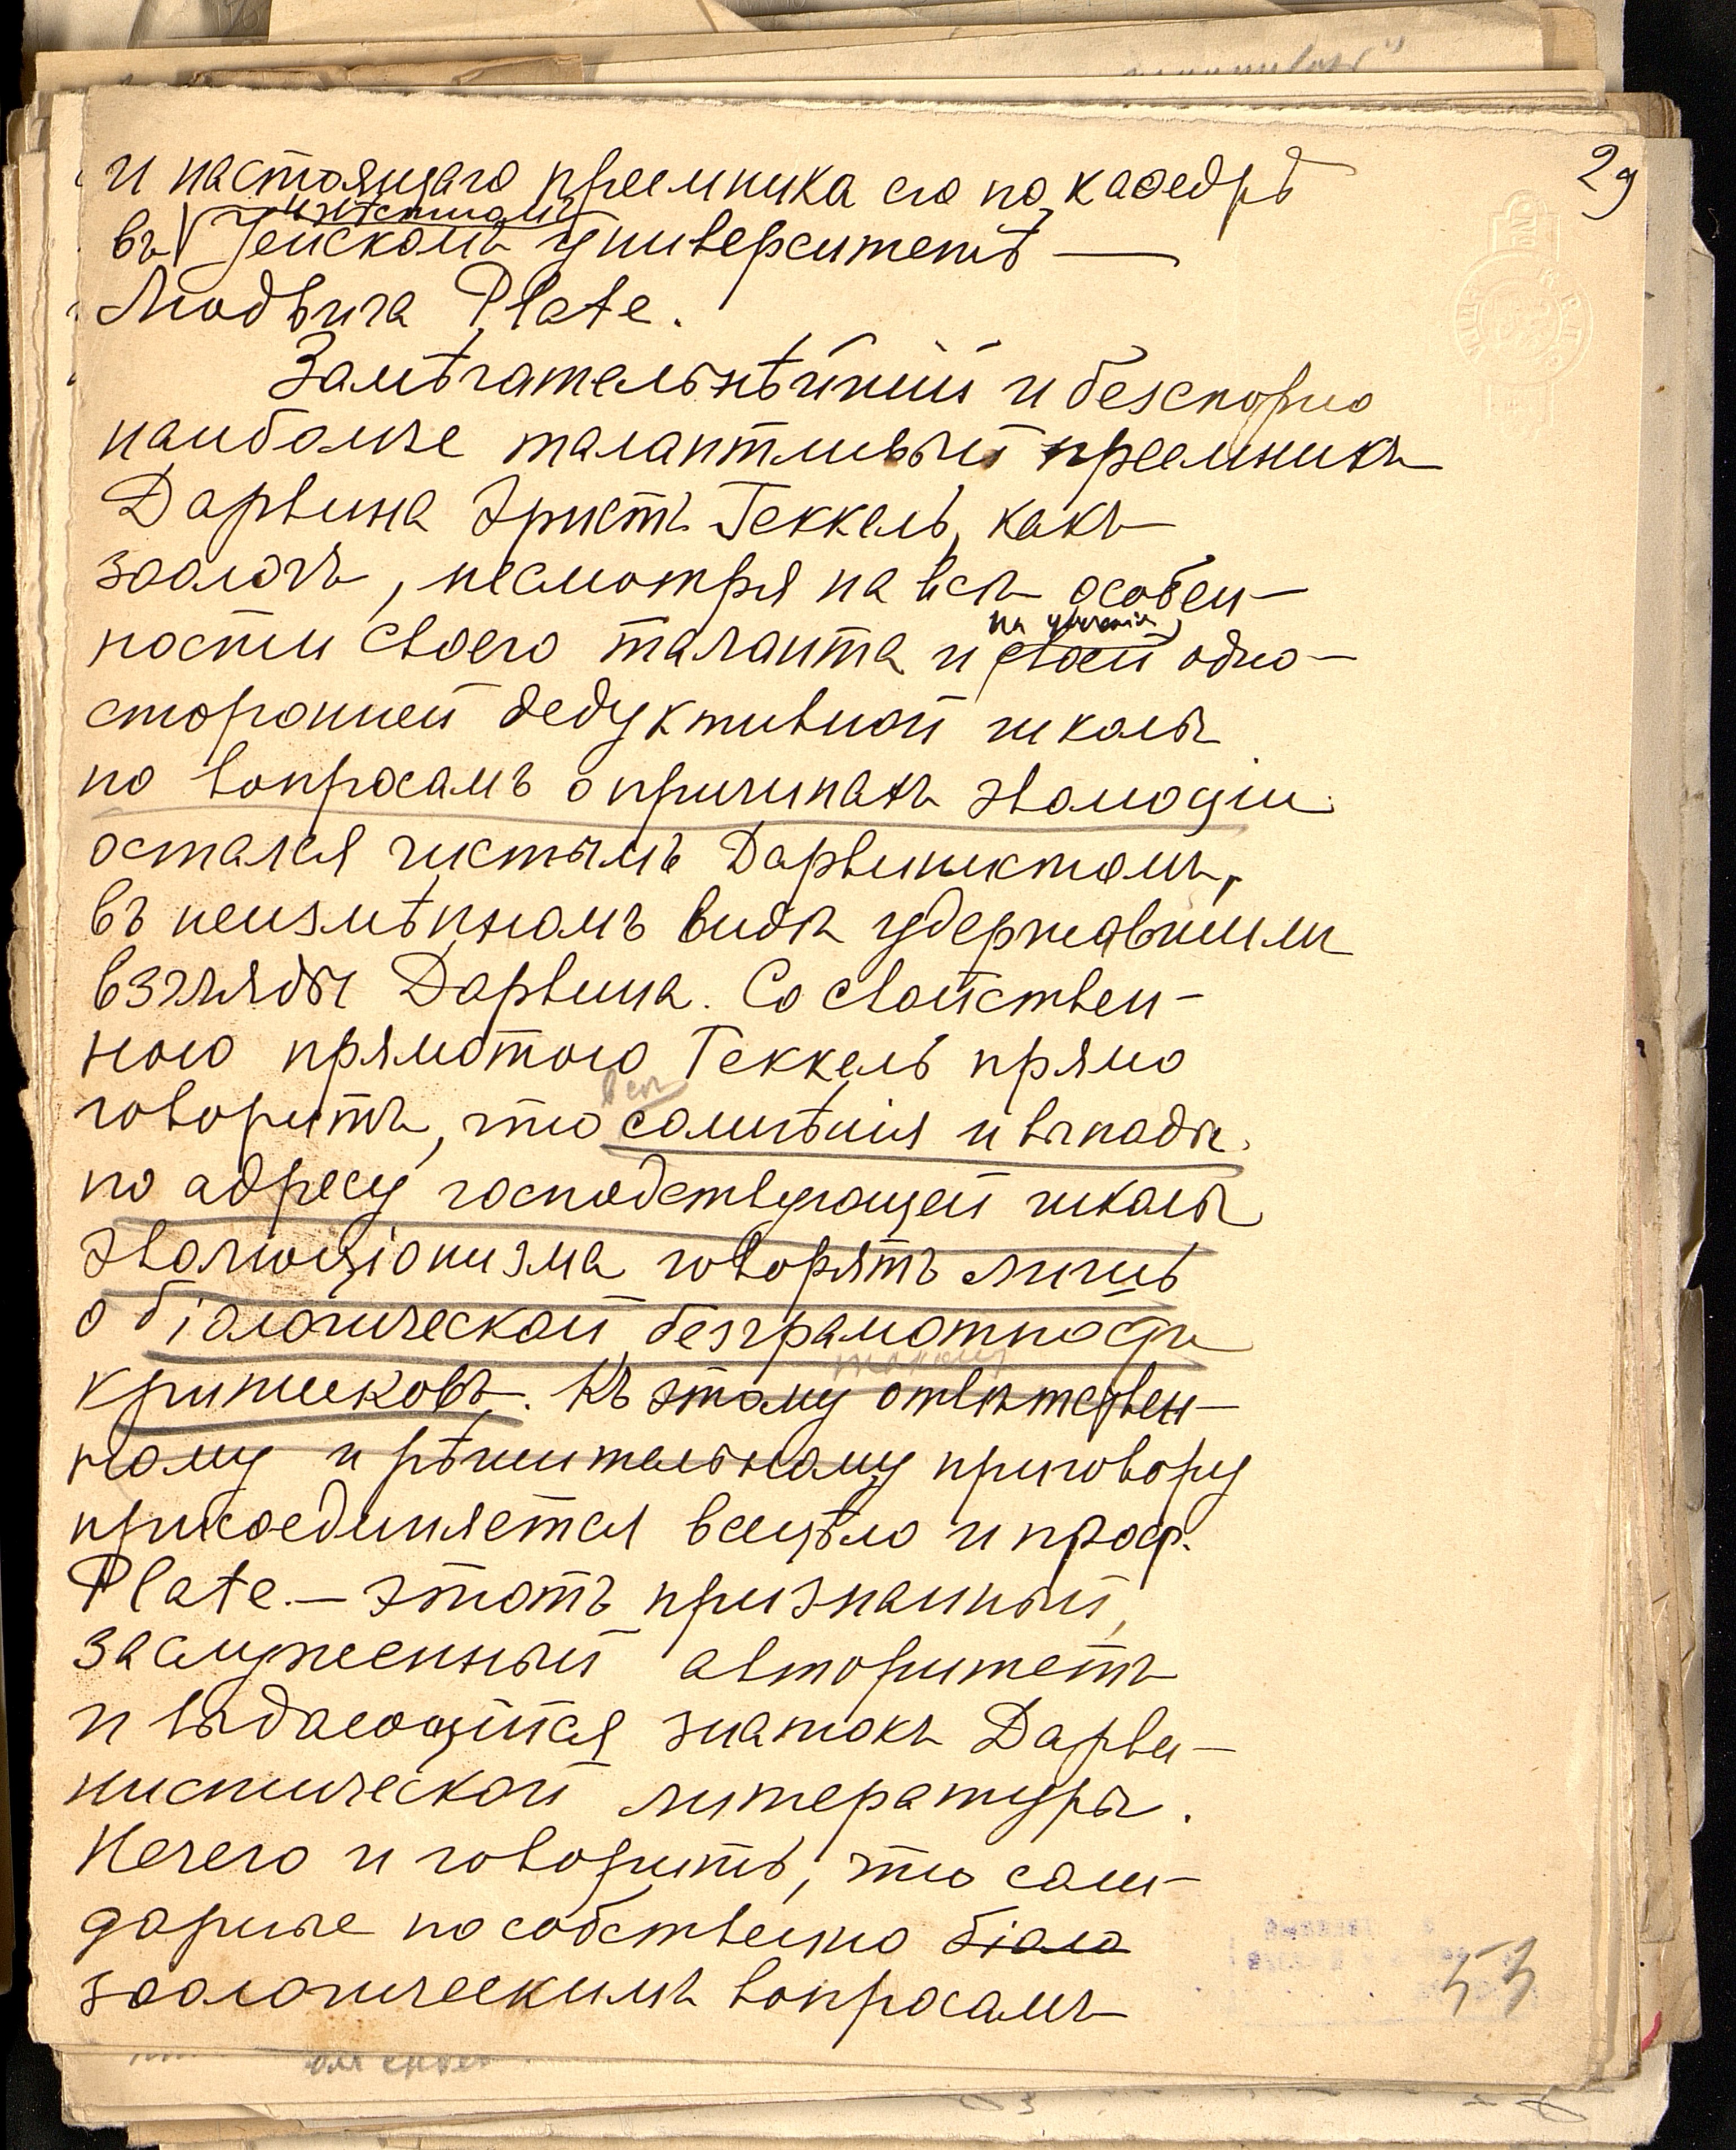 29
и настоящаго преемника его по каѳедрѣ
въ Іенскомъ университетѣ —
Людвига Plate.
Замѣчательнѣйшій и безспорно
наиболѣе талантливый преемникъ
Дарвина Эрнстъ Геккель, какъ
зоологъ, несмотря на всѣ особен-
на
ности своего таланта и своей одно-
сторонней дедуктивной школы
по вопросамъ о причинахъ эволюціи
остался чистымъ Дарвинистомъ,
въ неизмѣнномъ видѣ удержавшимъ
взгляды Дарвина. Со свойствен-
ною прямотою Геккель прямо
всѣ
говоритъ, что сомнѣнія и выпады
по адресу господствующей школы
эволюціонизма говорятъ лишь
о біологической безграмотности
такому
критиковъ. Къ этому отвѣтствен-
ному и рѣшительному приговору
присоединяется всецѣло и проф.
Plate. — этотъ признанный,
заслуженный авторитетъ
и выдающійся знатокъ Дарви-
нистической литературы.
Нечего и говорить, что соли-
дарные по собственно біоло
зоологическимъ вопросамъ
53